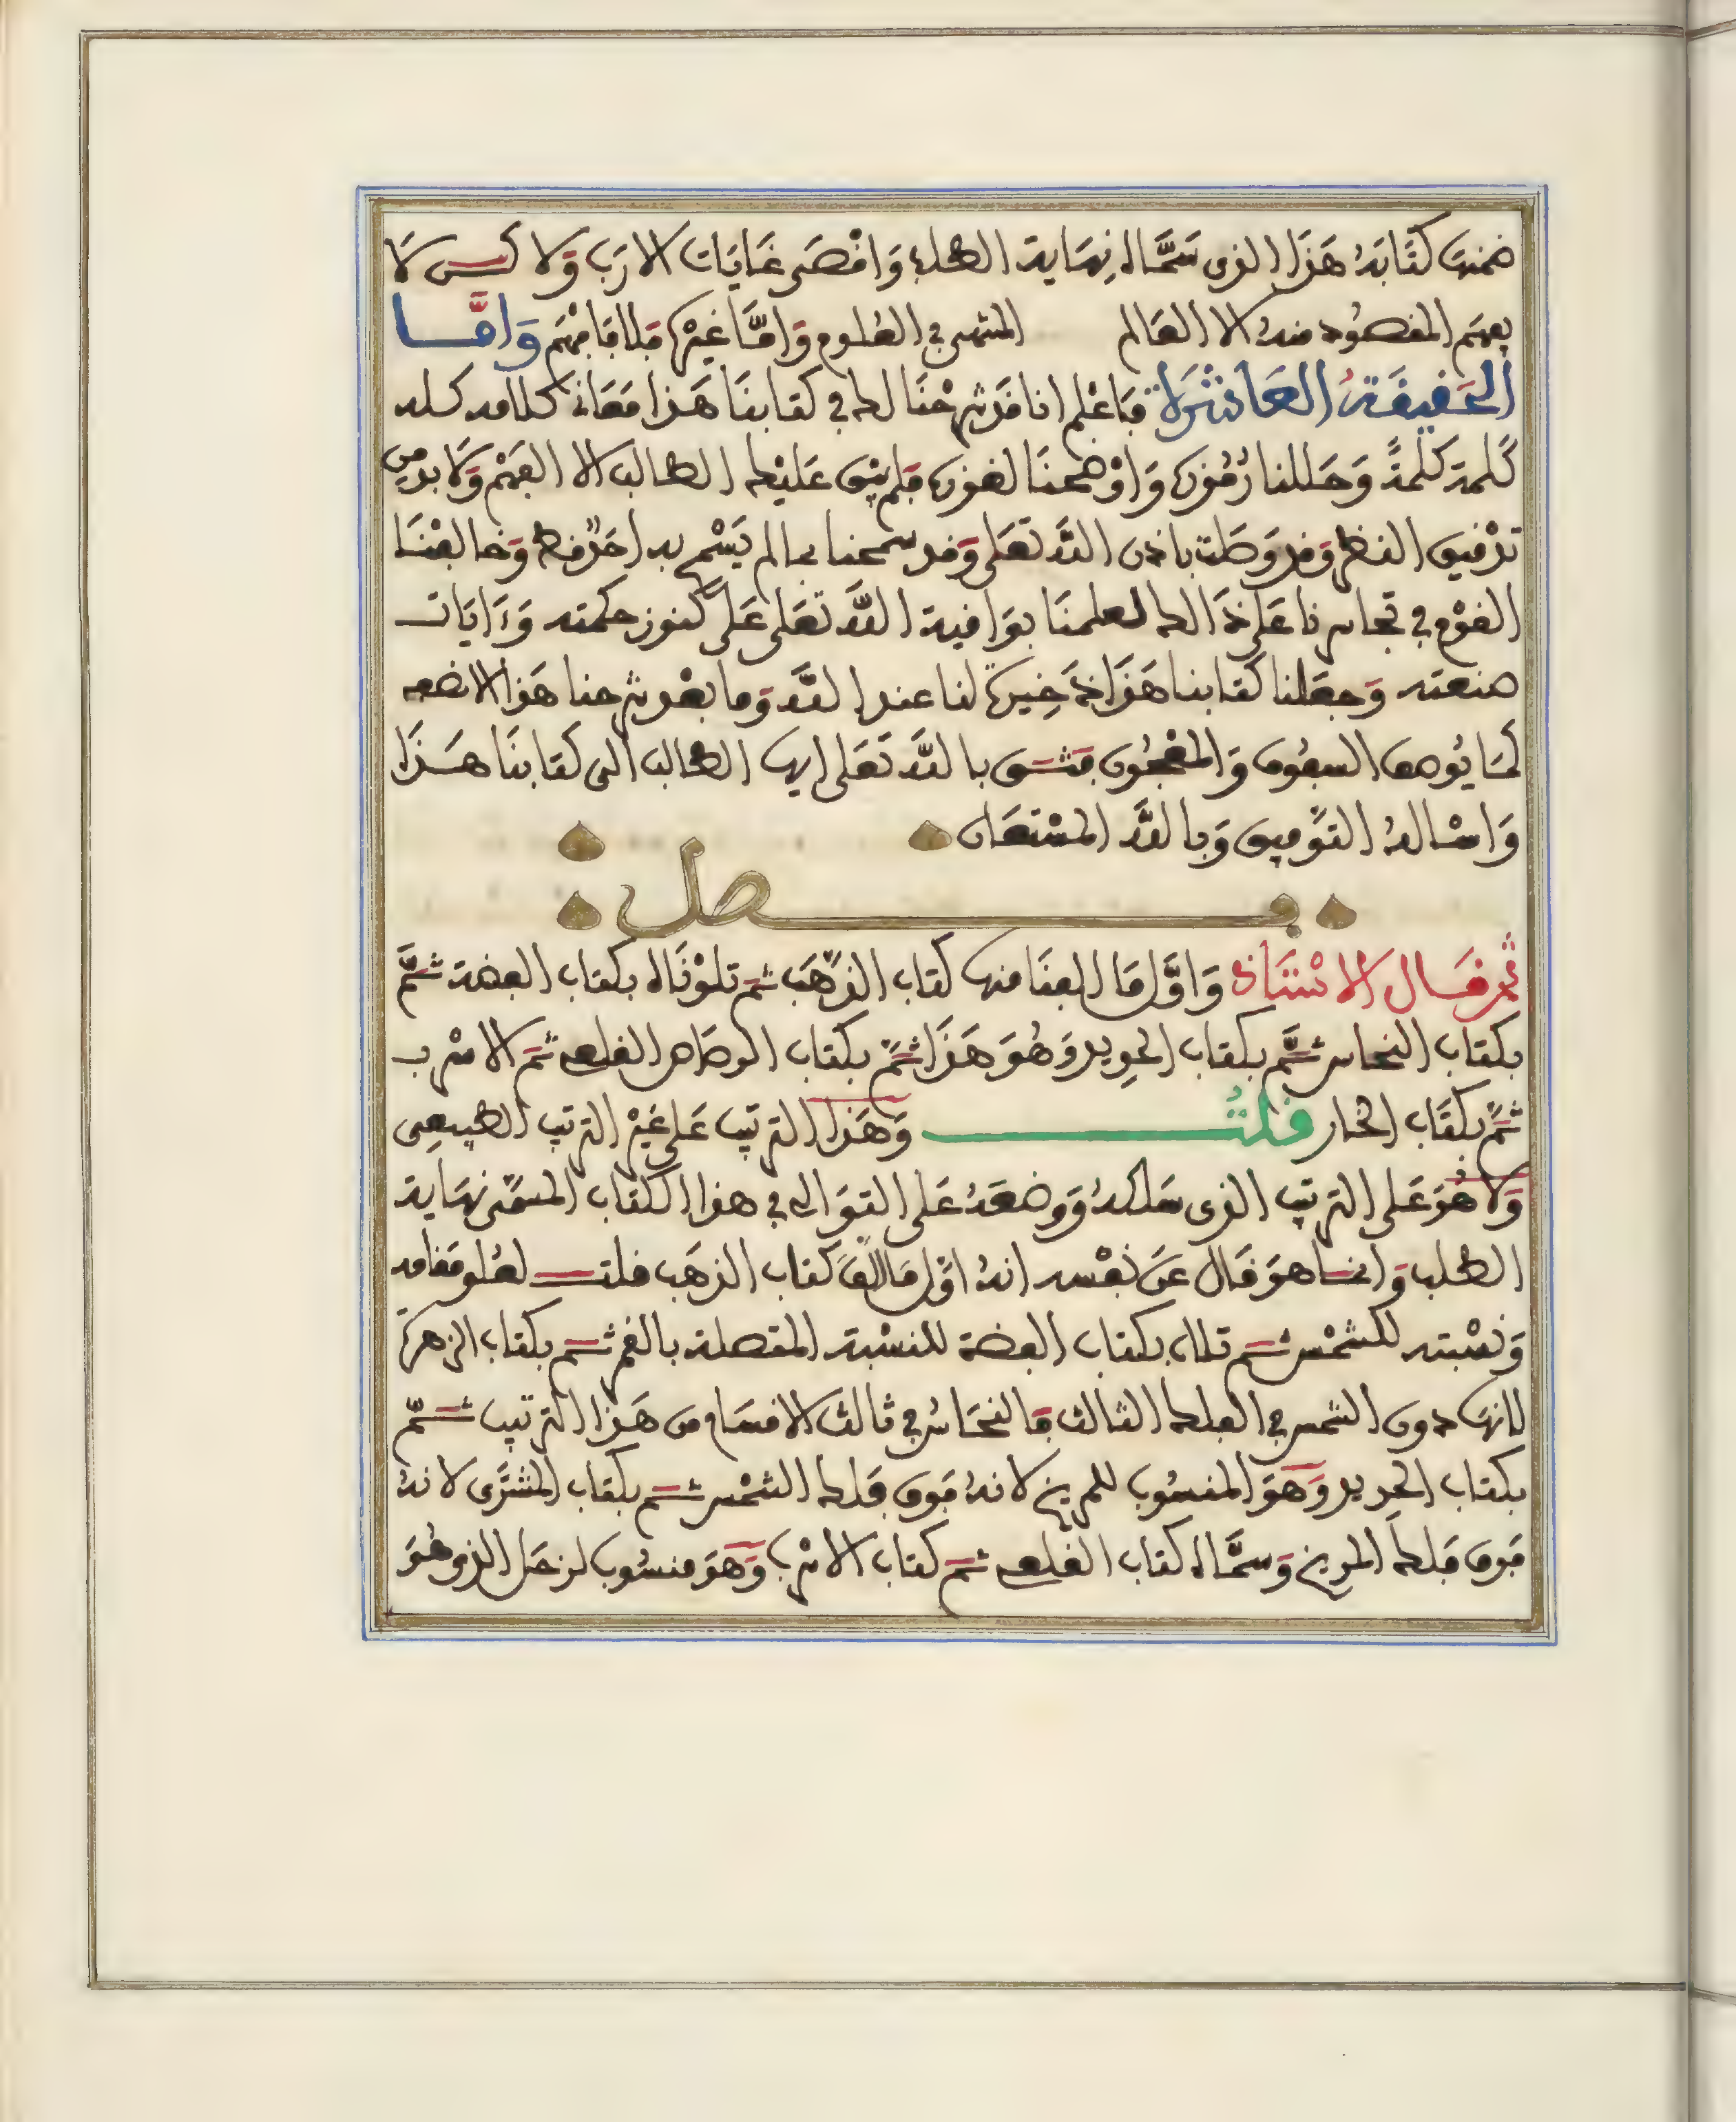 ضمنها كتابه هَذا الذى سَمَّاه نِهَاية الطلب وَاقْصَى غَايَات الارَب وَلا كــن لَا
يفهَم المقصُود منهُ الا العَالم المنتهى في العُلوم وَامَّا غيْرهُ فلا فافهَم وَامَّــا
الحَقيقَةُ العَاشرَة فَاعْلم انا قدْ شرحْنَا لك في كتابنَا هَذا مَعَانى كلامه كله
كلمة كلمةً وَحَللنا رُمُوزه وَاوْضحنَا لغوزه فلم يبْق عَليْك الطالب الا الفهْم وَلَا بد من
تدْقيق النظر وَقد وَصَلت باذن اللَّه تعَلى وَقد سمحنا بما لم يَسْمح به احَدٌ قط وَخالفْنَا
القوْم في تجاسرنا عَلى ذَالك لعلمنَا بوَافية اللَّه تعَلى عَلى كنوز حكمته وَءَايَات
صنعته وَجعَلنا كتابنا هَذَا ذَخِيرة لنا عند اللَّه وَما بعْد شرحنا هَذا الايضع
لمَا يُوصف السبعُون وَالمفْجعُون فثــق بالله تَعَلى ايها الطالب الى كتابنَا هَــذَا
وَاسْالهُ التوْفيق وَباللَّه المسْتعَان
فــصل
ثم قَــال الاسْتَاذ وَاوَّل مَا الفنَا منها كتاب الذّهَب ثم تلوْنَاه بكتاب الفضة ثمَّ
بكتاب النحاس ثمَّ بكتاب الحدِيد وَهُوَ هَذَا ثمّ بكتاب الرصَاص القلعى ثم الاسْرب
ثمّ بكتَاب الخار قلتُ وَهَذا الترتيب عَلى غيْر الترتيب الطبيعى
وَلا هُوَ عَلى الترتيب الذى سَلكهُ وَوضعَهُ عَلى التوَالى في هذا الكتاب المسمّى نهَاية
الطلب وَانمــا هوَ قال عَن نفْسه انهُ اوّل مَا الفَ كتاب الذهَب قلتــ لعُلو مَقامه
وَنسْبته للشمْس ثــم تلاه بكتاب الفضة للنسْبة المتصلة بالقمر ثــم بكتاب الزهرة
لانهَا دون الشمس في الفلك الثالث فالنحَاسُ في ثالث الاقسَام من هَذا الترتيب ثــمّ
بكتاب الحَديد وَهوَ المنسُوب للمريخ لانهُ فوق فلك الشمْس ثــم بكتاب المشترى لانهُ
فوق فلك المريخ وَسمَّاه كتاب القلعى ثم كتاب الاسْرب وَهوَ منسُوب لزحَل الذى هُوَ